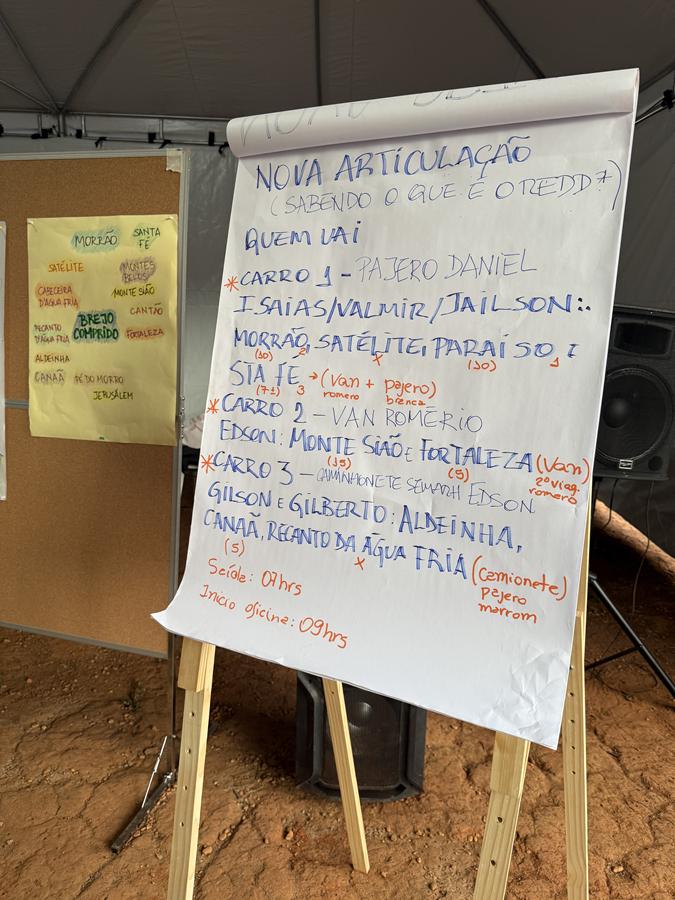 MORRÃO
SANTA FÉ
SATÉLITE
MONTES BELOS
CABECEIRA D'ÁGUA FRIA
MONTE SIÃO
BREJO COMPRIDO
CANTÃO
RECANTO D'ÁGUA FRIA
FORTALEZA
ALDEINHA
CANAÃ
PÉ DO MORRO
JERUSÁLEM
NOVA ARTICULAÇÃO
(SABENDO O QUE É O REDD+)
QUEM VAI
* CARRO 1 - PAJERO DANIEL
ISAIAS/VALMIR/JAILSON:.
MORRÃO, SATÉLITE, PARAÍSO, E
(10) 2 x (10) 1
STA FE → (van + pajero)
(7±) 3 romero branca
* CARRO 2 - VAN ROMÉRIO
EDSON: MONTE SIÃO E FORTALEZA (Van)
(15) (5) 2º viag. romero
* CARRO 3 - CAMINHONETE SEMARH EDSON
GILSON E GILBERTO: ALDEINHA,
CANAÃ, RECANTO DA ÁGUA FRIA (camionete)
(5) x pajero
marrom
Saída: 07hrs
Inicio oficina: 09hrs